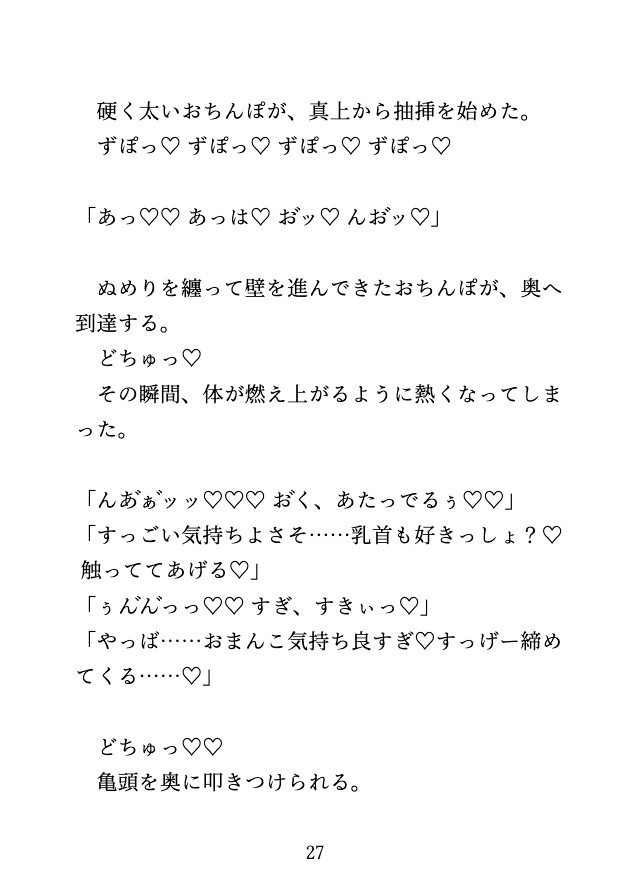 硬く太いおちんぽが、真上から抽挿を始めた。
ずぽっ♡ ずぽっ♡ ずぽっ♡ ずぽっ♡
「あっ♡♡ あっは♡ お゛ッ♡ んお゛ッ♡」
ぬめりを纏って壁を進んできたおちんぽが、奥へ
到達する。
どちゅっ♡
その瞬間、体が燃え上がるように熱くなってしま
った。
「んあ゛ぁ゛ッッ♡♡♡ お゛く、あたっでるぅ♡♡」
「すっごい気持ちよさそ……乳首も好きっしょ？♡
触っててあげる♡」
「ぅん゛ん゛っっ♡♡ すぎ、すきぃっ♡」
「やっば……おまんこ気持ち良すぎ♡すっげー締め
てくる……♡」
どちゅっ♡♡
亀頭を奥に叩きつけられる。
27